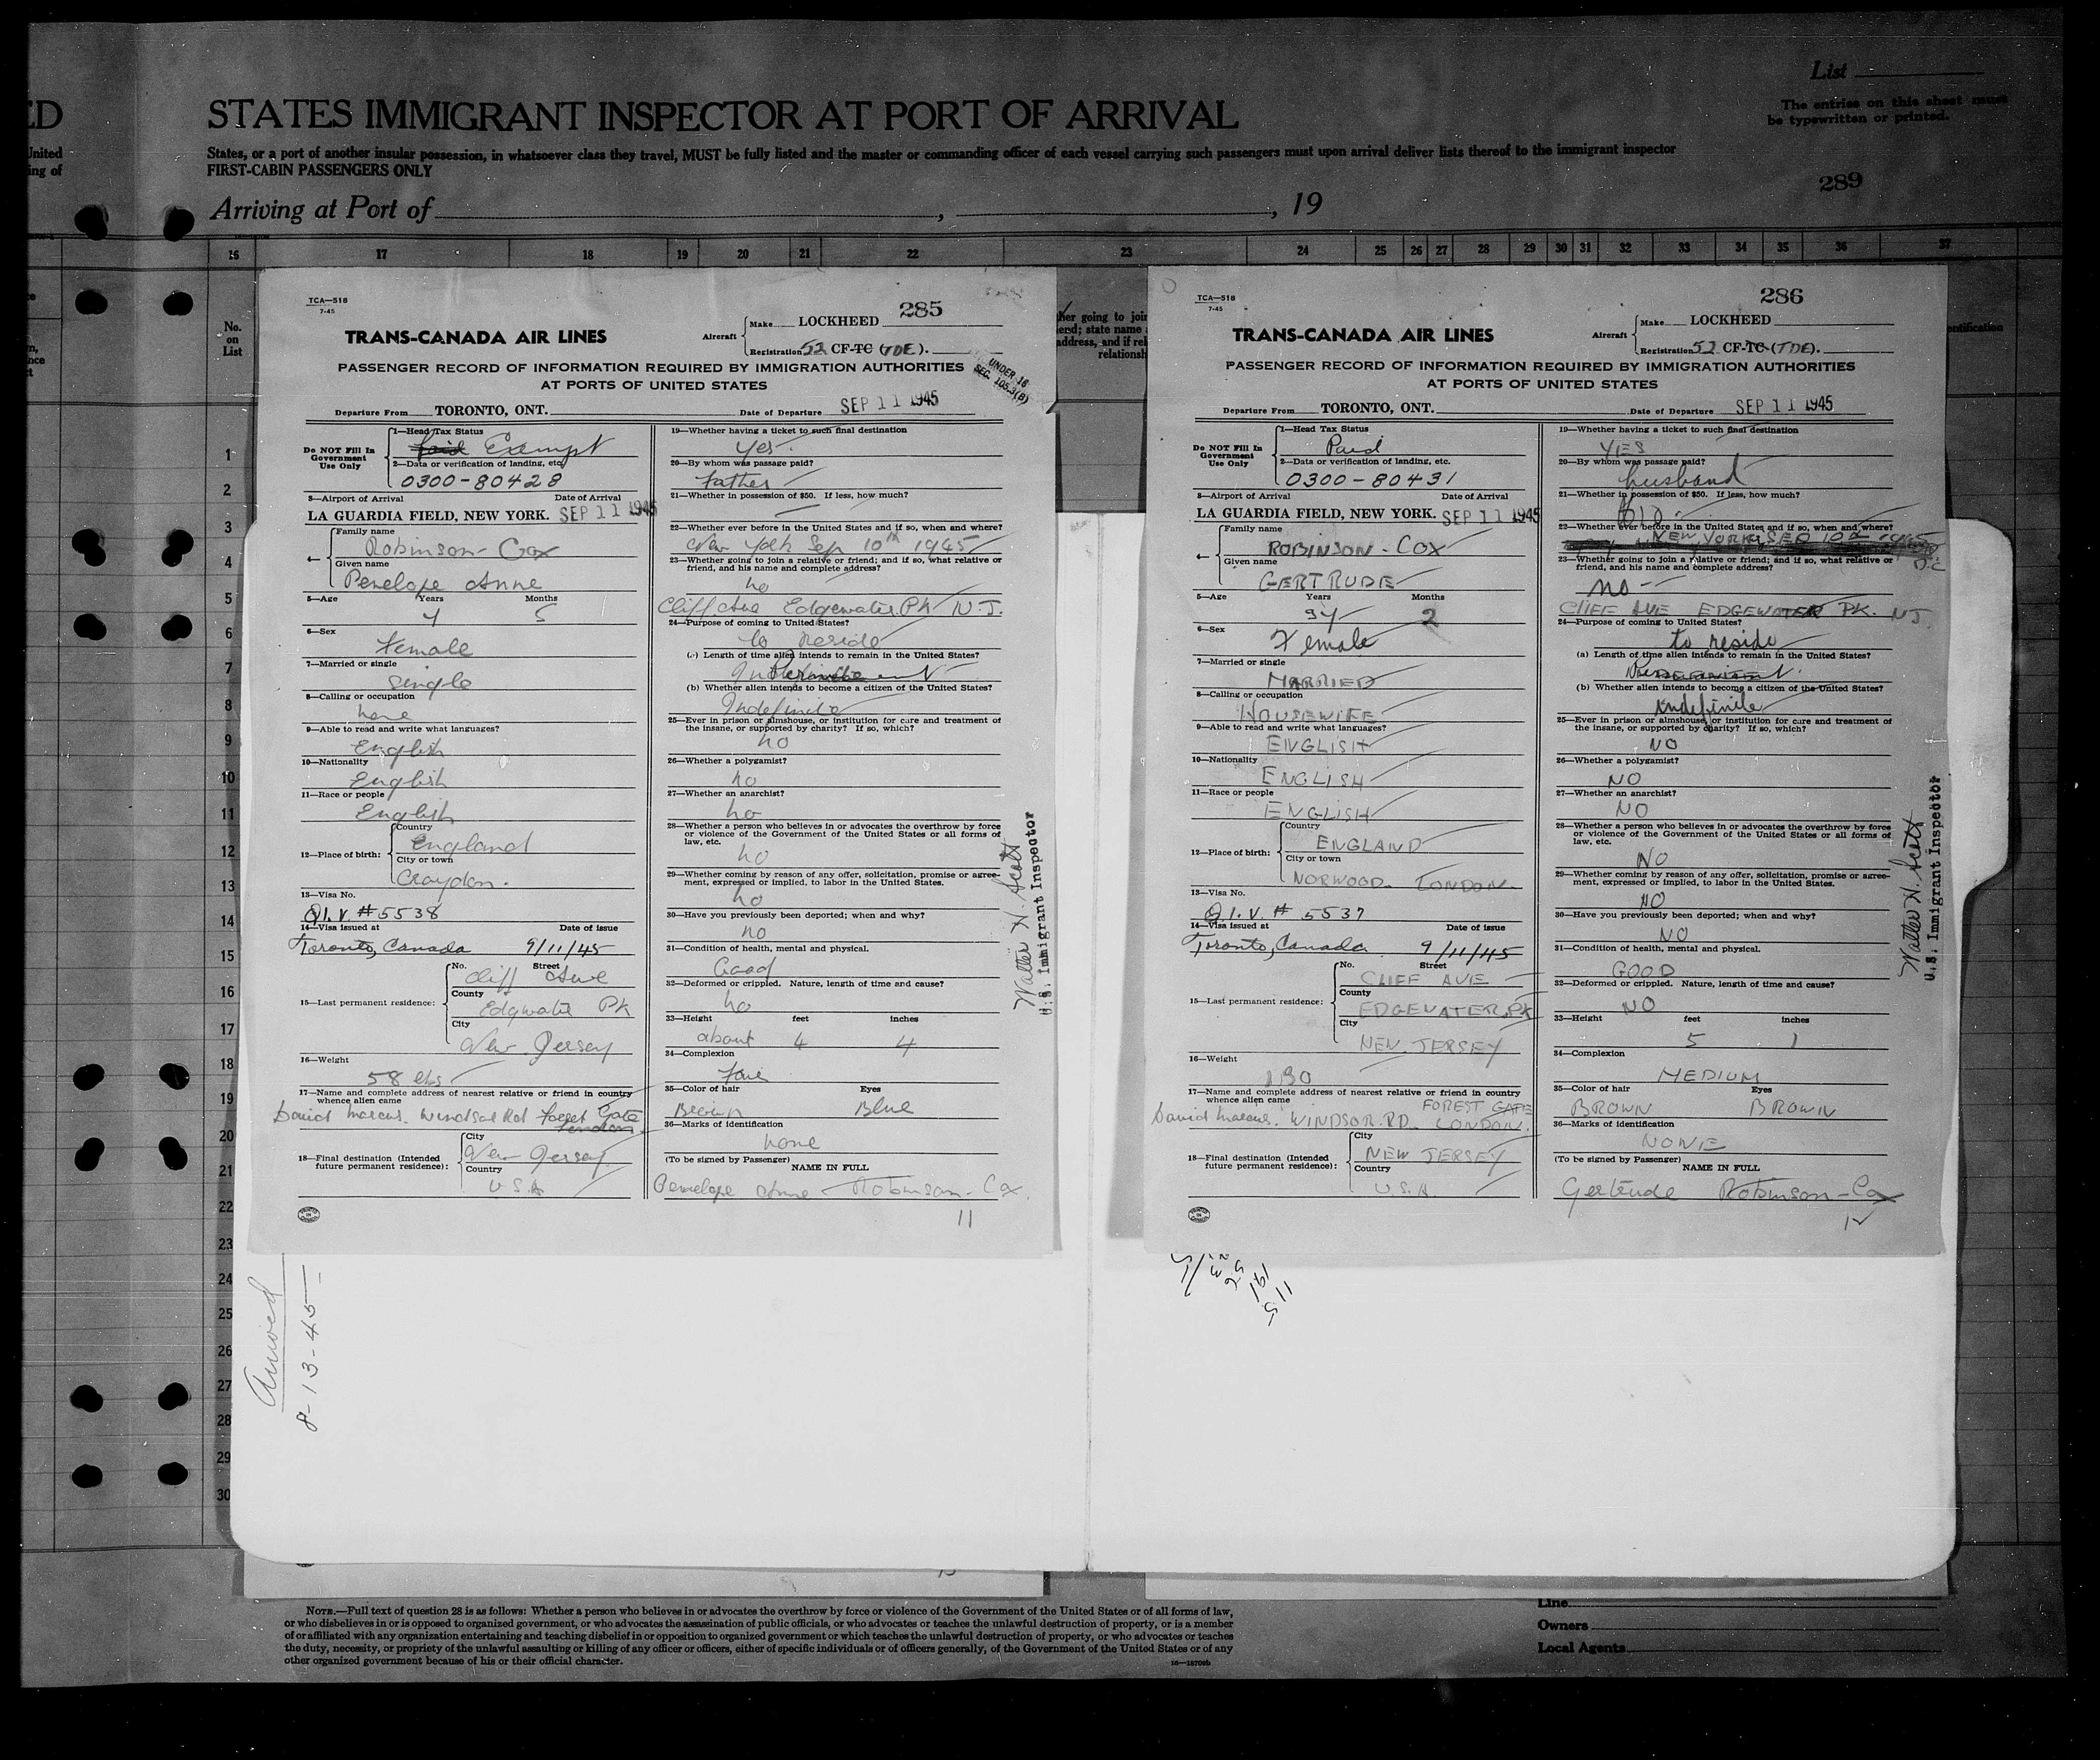 ED
STATES IMMIGRANT INSPECTOR AT PORT OF ARRIVAL
List
The entries on this sheet must
be typewritten or printed.
United
ing of
States, or a port of another insular possession, in whatsoever class they travel, MUST be fully listed and the master or commanding officer of each vessel carrying such passengers must upon arrival deliver lists thereof to the immigrant inspector
FIRST-CABIN PASSENGERS ONLY
289
Arriving at Port of , , 19
16 17 18 19 20 21 22 23 24 25 26 27 28 29 30 31 32 33 34 35 36 37
No.
on
List
1
2
3
4
5
6
7
8
9
10
11
12
13
14
15
16
17
18
19
20
21
22
23
24
25
26
27
28
29
30
TCA—518
7-45
285
TRANS-CANADA AIR LINES
Aircraft Make LOCKHEED
Registration 52 CF-TC (TDE).
PASSENGER RECORD OF INFORMATION REQUIRED BY IMMIGRATION AUTHORITIES
AT PORTS OF UNITED STATES
UNDER 16
SEC. 105.3(B)
Departure From TORONTO, ONT. Date of Departure SEP 11 1945
Do NOT Fill In
Government
Use Only
1—Head Tax Status
Paid Exempt
2—Data or verification of landing, etc.
0300-80428
3—Airport of Arrival Date of Arrival
LA GUARDIA FIELD, NEW YORK. SEP 11 1945
4 Family name
Robinson-Cox
Given name
Penelope Anne
5—Age Years Months
4 5
6—Sex
Female
7—Married or single
Single
8—Calling or occupation
none
9—Able to read and write what languages?
English
10—Nationality
English
11—Race or people
English
12—Place of birth: Country
England
City or town
Croydon.
13—Visa No.
Q.I.V. #5538
14—Visa issued at Date of issue
Toronto, Canada 9/11/45
15—Last permanent residence: No. Street
Cliff Ave
County
Edgwater Pk
City
New Jersey
16—Weight
58 lbs
17—Name and complete address of nearest relative or friend in country
whence alien came
David Marcus. Windsor Rd Forest Gate
London.
18—Final destination (Intended
future permanent residence): City
New Jersey
Country
U.S.A
19—Whether having a ticket to such final destination
Yes
20—By whom was passage paid?
Father
21—Whether in possession of $50. If less, how much?
—
22—Whether ever before in the United States and if so, when and where?
New York Sep 10th 1945
23—Whether going to join a relative or friend; and if so, what relative or
friend, and his name and complete address?
no
Cliff Ave Edgewater Pk N.J.
24—Purpose of coming to United States?
to reside
(a) Length of time alien intends to remain in the United States?
Permanent
(b) Whether alien intends to become a citizen of the United States?
Indefinite
25—Ever in prison or almshouse, or institution for care and treatment of
the insane, or supported by charity? If so, which?
no
26—Whether a polygamist?
no
27—Whether an anarchist?
no
28—Whether a person who believes in or advocates the overthrow by force
or violence of the Government of the United States or all forms of
law, etc.
no
29—Whether coming by reason of any offer, solicitation, promise or agree-
ment, expressed or implied, to labor in the United States.
no
30—Have you previously been deported; when and why?
no
31—Condition of health, mental and physical.
Good
32—Deformed or crippled. Nature, length of time and cause?
no
33—Height feet inches
about 4 4
34—Complexion
Fair
35—Color of hair Eyes
Brown Blue
36—Marks of identification
none
(To be signed by Passenger) NAME IN FULL
Penelope Anne Robinson-Cox.
11
Walter H. Scott
U.S. Immigrant Inspector
TCA—518
7-45
286
TRANS-CANADA AIR LINES
Aircraft Make LOCKHEED
Registration 52 CF-TC (TDE).
PASSENGER RECORD OF INFORMATION REQUIRED BY IMMIGRATION AUTHORITIES
AT PORTS OF UNITED STATES
Departure From TORONTO, ONT. Date of Departure SEP 11 1945
Do NOT Fill In
Government
Use Only
1—Head Tax Status
Paid
2—Data or verification of landing, etc.
0300-80431
3—Airport of Arrival Date of Arrival
LA GUARDIA FIELD, NEW YORK. SEP 11 1945
4 Family name
ROBINSON-COX
Given name
GERTRUDE
5—Age Years Months
34 2
6—Sex
Female
7—Married or single
MARRIED
8—Calling or occupation
HOUSEWIFE
9—Able to read and write what languages?
ENGLISH
10—Nationality
ENGLISH
11—Race or people
ENGLISH
12—Place of birth: Country
ENGLAND
City or town
NORWOOD. LONDON.
13—Visa No.
Q.I.V. # 5537
14—Visa issued at Date of issue
Toronto, Canada. 9/11/45
15—Last permanent residence: No. Street
CLIFF AVE
County
EDGEWATER.PK
City
NEW JERSEY
16—Weight
130
17—Name and complete address of nearest relative or friend in country
whence alien came
FOREST GATE
David Marcus. WINDSOR.RD. LONDON.
18—Final destination (Intended
future permanent residence): City
NEW JERSEY
Country
U.S.A.
19—Whether having a ticket to such final destination
YES
20—By whom was passage paid?
husband
21—Whether in possession of $50. If less, how much?
$10.
22—Whether ever before in the United States and if so, when and where?
NEW YORK SEP 10th 1945
23—Whether going to join a relative or friend; and if so, what relative or
friend, and his name and complete address?
no
CLIFF AVE EDGEWATER PK. NJ.
24—Purpose of coming to United States?
to reside
(a) Length of time alien intends to remain in the United States?
Permanent
(b) Whether alien intends to become a citizen of the United States?
indefinite
25—Ever in prison or almshouse, or institution for care and treatment of
the insane, or supported by charity? If so, which?
NO
26—Whether a polygamist?
NO
27—Whether an anarchist?
NO
28—Whether a person who believes in or advocates the overthrow by force
or violence of the Government of the United States or all forms of
law, etc.
NO
29—Whether coming by reason of any offer, solicitation, promise or agree-
ment, expressed or implied, to labor in the United States.
NO
30—Have you previously been deported; when and why?
NO
31—Condition of health, mental and physical.
GOOD
32—Deformed or crippled. Nature, length of time and cause?
NO
33—Height feet inches
5 1
34—Complexion
MEDIUM
35—Color of hair Eyes
BROWN BROWN
36—Marks of identification
NONE
(To be signed by Passenger) NAME IN FULL
Gertrude Robinson-Cox
12
Walter H. Scott
U.S. Immigrant Inspector
Arrived
8-13-45
NOTE.—Full text of question 28 is as follows: Whether a person who believes in or advocates the overthrow by force or violence of the Government of the United States or of all forms of law,
or who disbelieves in or is opposed to organized government, or who advocates the assassination of public officials, or who advocates or teaches the unlawful destruction of property, or is a member
of or affiliated with any organization entertaining and teaching disbelief in or opposition to organized government or which teaches the unlawful destruction of property, or who advocates or teaches
the duty, necessity, or propriety of the unlawful assaulting or killing of any officer or officers, either of specific individuals or of officers generally, of the Government of the United States or of any
other organized government because of his or their official character.
16—18709b
Line
Owners
Local Agents